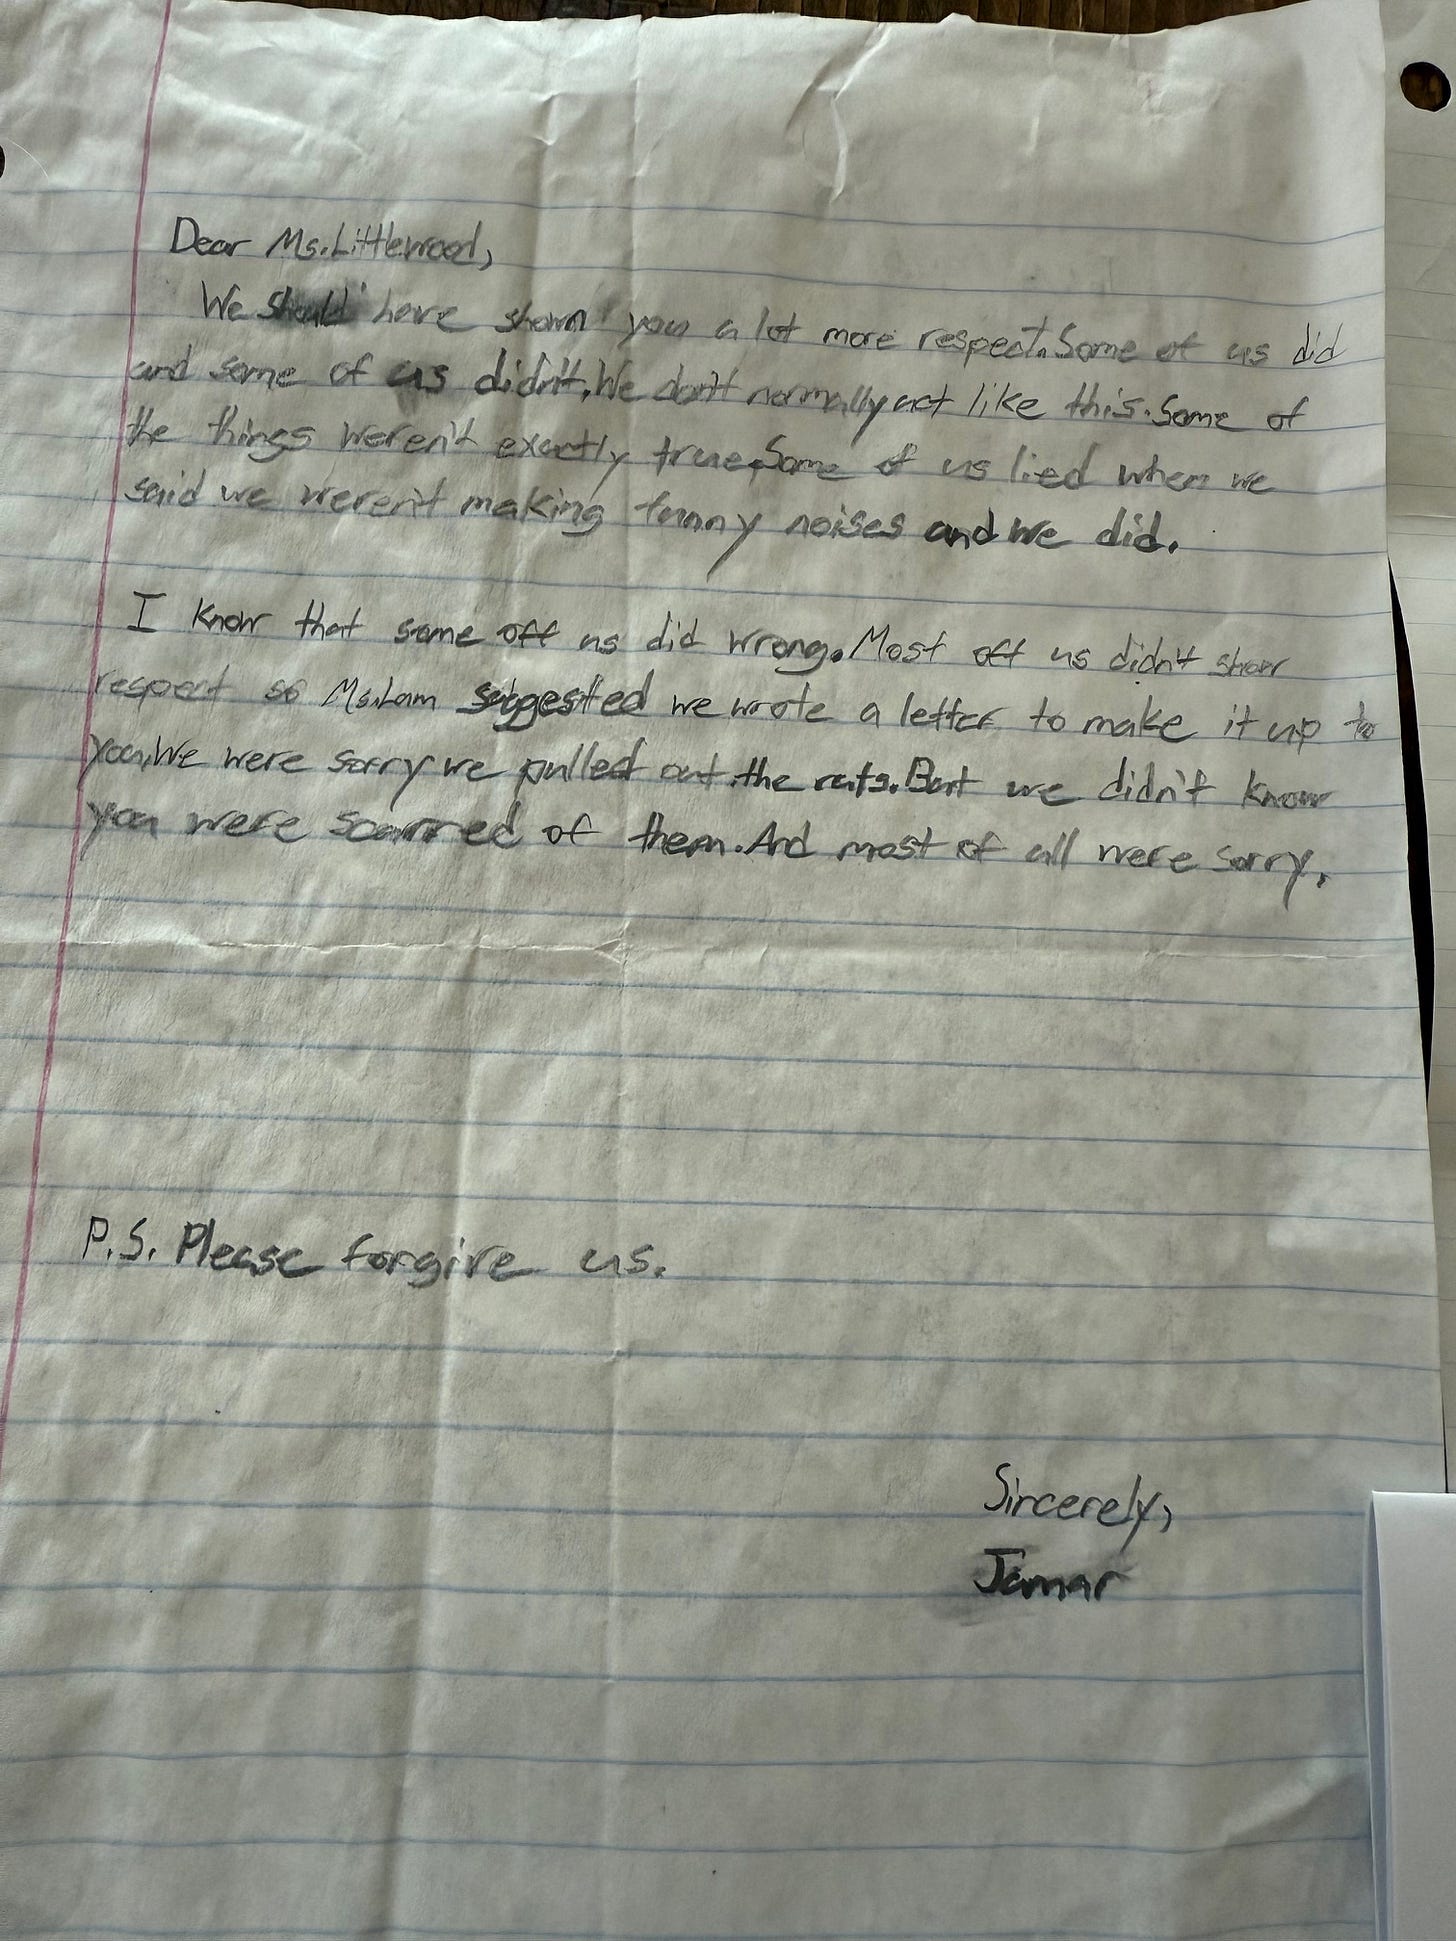 Dear Ms. Littlewood,
We should have shown you a lot more respect. Some of us did
and some of us didn't. We don't normally act like this. Some of
the things weren't exactly true. Some of us lied when we
said we weren't making funny noises and we did.
I know that some off us did wrong. Most off us didn't show
respect so Ms. Lam suggested we wrote a letter to make it up to
you. We were sorry we pulled out the rats. But we didn't know
you were scarred of them. And most of all were sorry.
P.S. Please forgive us.
Sincerely,
Jamar